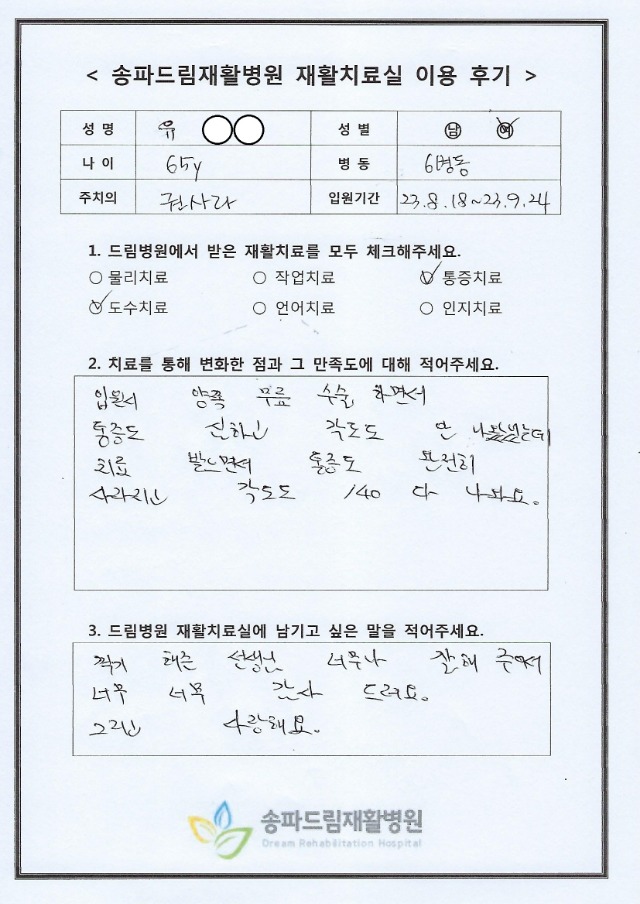 < 송파드림재활병원 재활치료실 이용 후기 >
성 명 유 성 별 남 여
나 이 65y 병 동 6병동
주치의 권사라 입원기간 23.8.18~23.9.24
1. 드림병원에서 받은 재활치료를 모두 체크해주세요.
물리치료 작업치료 통증치료
도수치료 언어치료 인지치료
2. 치료를 통해 변화한 점과 그 만족도에 대해 적어주세요.
입원서 양쪽 무릎 수술 하면서
통증도 심하고 각도도 안
치료 받으면서 통증도 완전히
사라지고 각도도 140 다 나와요.
3. 드림병원 재활치료실에 남기고 싶은 말을 적어주세요.
해준 선생님 너무나 잘해 주어서
너무 너무 감사 드려요.
그리고 사랑해요.
송파드림재활병원
Dream Rehabilitation Hospital